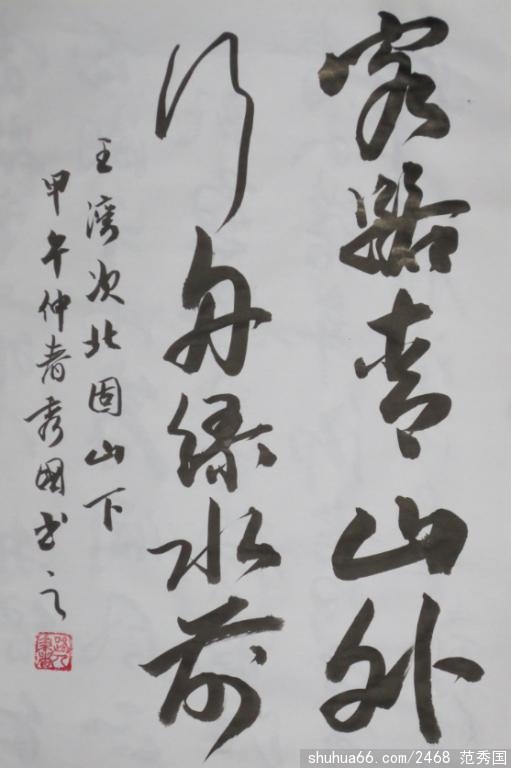 客路青山外
行舟绿水前
王湾次北固山下
甲午仲春秀國书之
shuhua66.com/2468 范秀国